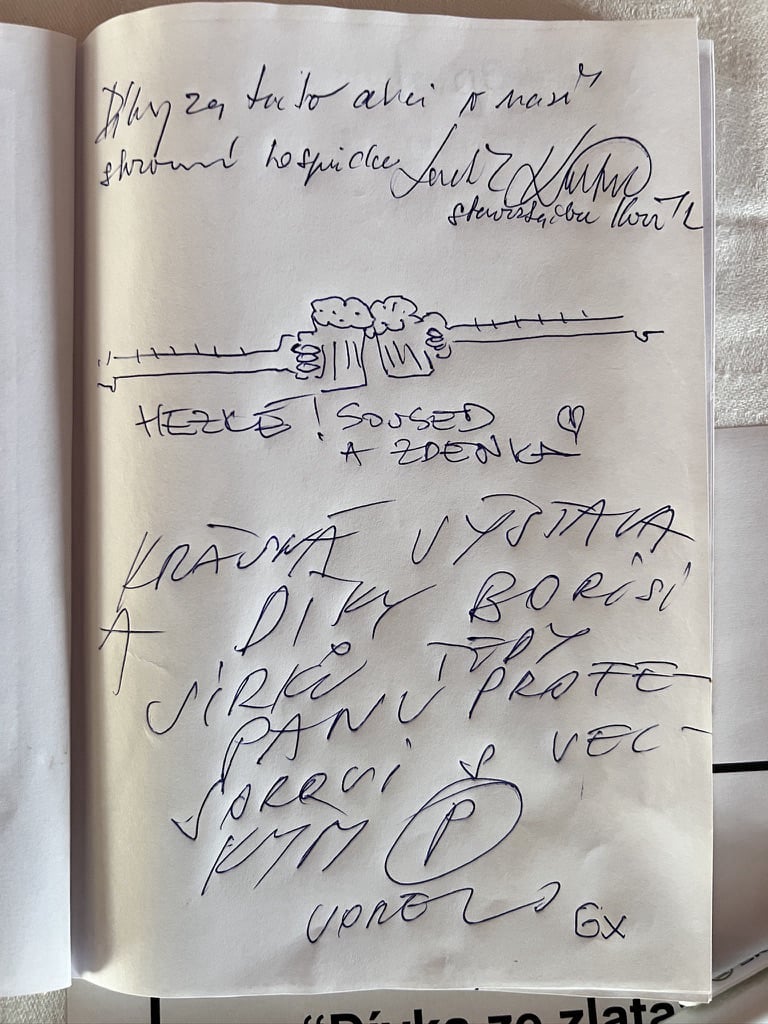 Díky za tuto akci v naší
skromné hospůdce
HEZKÉ! SOUSED
A ZDENKA
KRÁSNÁ VÝSTAVA
A DÍKY BORISI
JÍRKŮ TEDY
PANU PROFE-
SOROVI VEL-
KÝM P
VOREL 6x
"Dívka ze zlata"